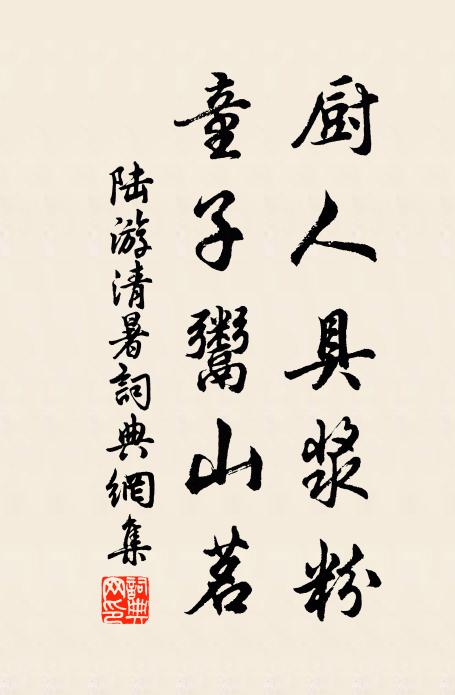 厨人具浆粉
童子鬻山茗
陆游清暑詞典網集
詞典网印